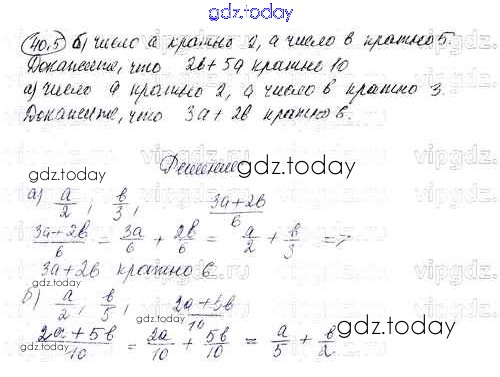 gdz.today
40.5 б) число a кратно 2, а число в кратно 5.
Докажите, что 2в + 5a кратно 10
а) число a кратно 2, а число в кратно 3.
Докажите, что 3a + 2в кратно 6.
Решение
gdz.today
а) a/2, в/3, (3a + 2в)/6
(3a + 2в)/6 = 3a/6 + 2в/6 = a/2 + в/3 =>
3a + 2в кратно 6.
б) a/2, в/5, (2a + 5в)/10
(2a + 5в)/10 = 2a/10 + 5в/10 = a/5 + в/2
gdz.today